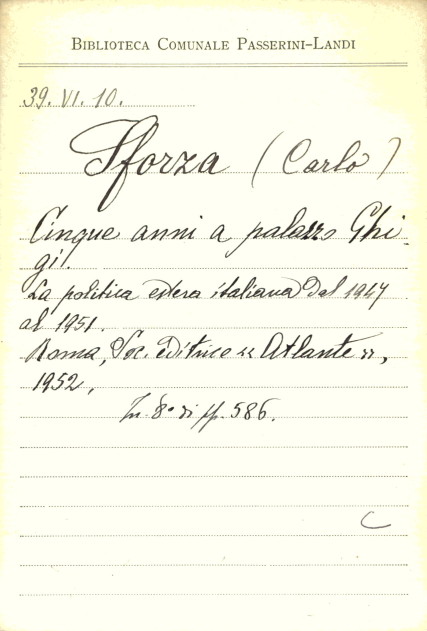 BIBLIOTECA COMUNALE PASSERINI-LANDI
39. VI. 10.
Sforza (Carlo)
Cinque anni a palazzo Ghi-
gi.
La politica estera italiana dal 1947
al 1951.
Roma, Soc. editrice « Atlante »,
1952.
In-8° di pp. 586.
C